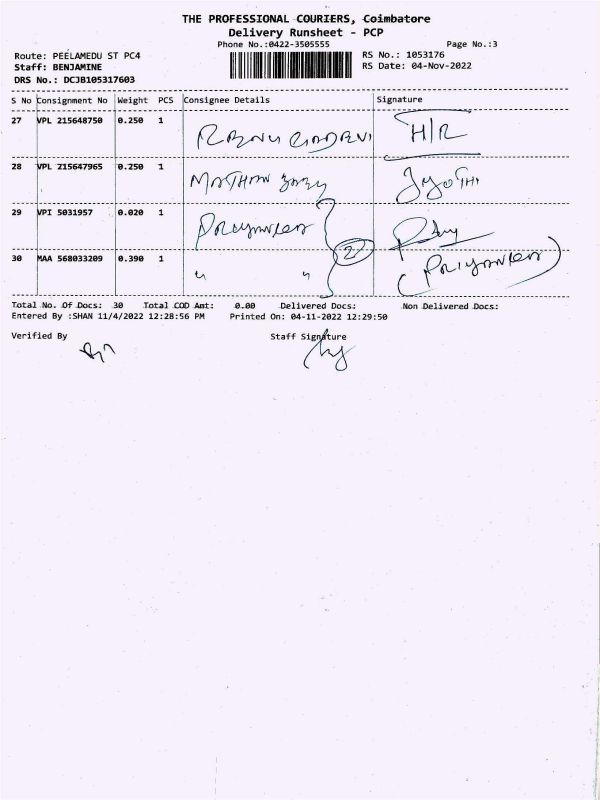 THE PROFESSIONAL COURIERS, Coimbatore
Delivery Runsheet - PCP
Phone No.:0422-3505555
Page No.:3
Route: PEELAMEDU ST PC4
RS No.: 1053176
Staff: BENJAMINE
RS Date: 04-Nov-2022
DRS No.: DCJB105317603
S No Consignment No Weight PCS Consignee Details Signature
27 VPL 215648750 0.250 1 H/R
28 VPL 215647965 0.250 1 Jyothi
29 VPI 5031957 0.020 1 Priyanka
2
30 MAA 568033209 0.390 1 " " (Priyanka)
Total No. Of Docs: 30 Total COD Amt: 0.00 Delivered Docs: Non Delivered Docs:
Entered By :SHAN 11/4/2022 12:28:56 PM Printed On: 04-11-2022 12:29:50
Verified By Staff Signature